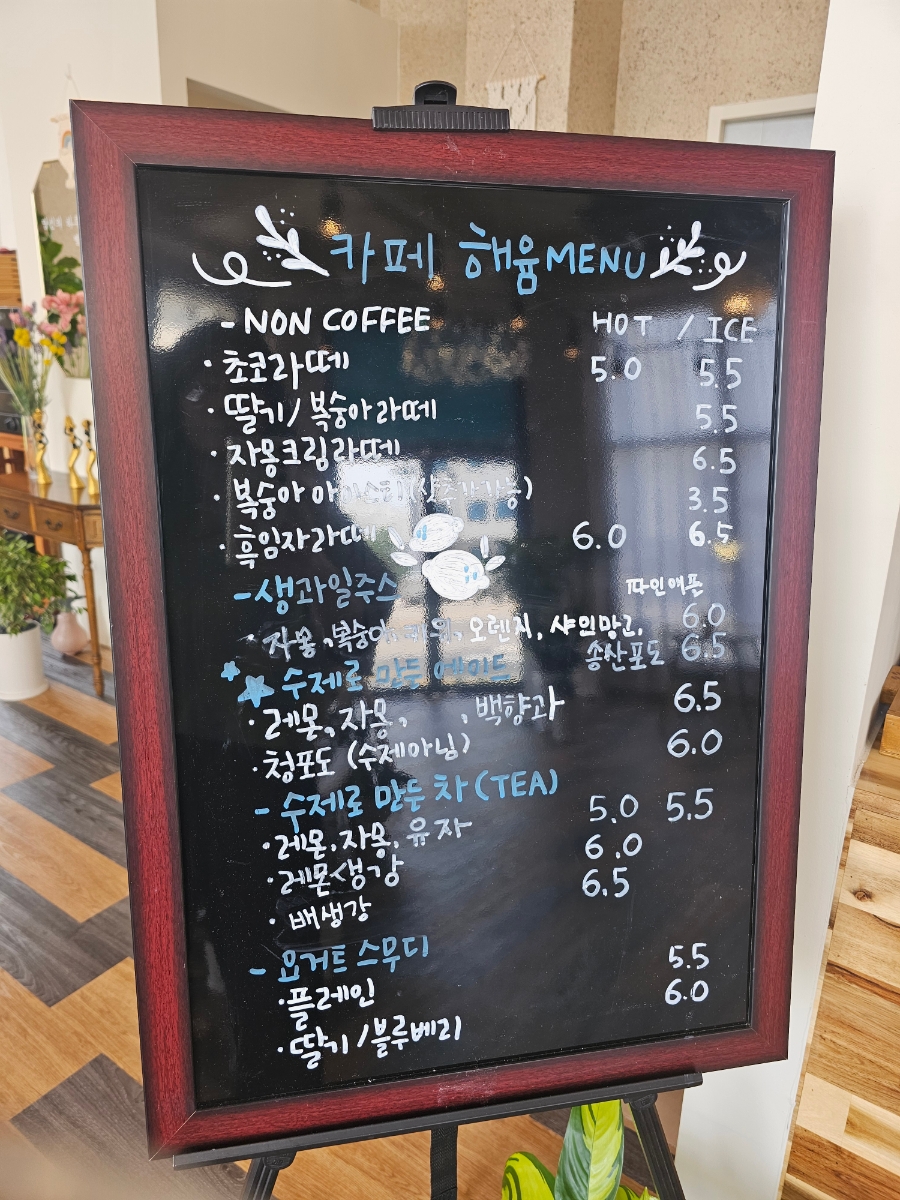 카페 해윰 MENU
- NON COFFEE HOT / ICE
· 초코라떼 5.0 5.5
· 딸기/복숭아라떼 5.5
· 자몽크림라떼 6.5
· 복숭아 아이스티(샷추가가능) 3.5
· 흑임자라떼 6.0 6.5
- 생과일주스 파인애플
· 자몽, 복숭아, 키위, 오렌지, 샤인망고, 6.0
송산포도 6.5
수제로 만든 에이드
· 레몬, 자몽, , 백향과 6.5
· 청포도 (수제아님) 6.0
- 수제로 만든 차(TEA)
· 레몬, 자몽, 유자 5.0 5.5
· 레몬생강 6.0
· 배생강 6.5
- 요거트 스무디
· 플레인 5.5
· 딸기/블루베리 6.0